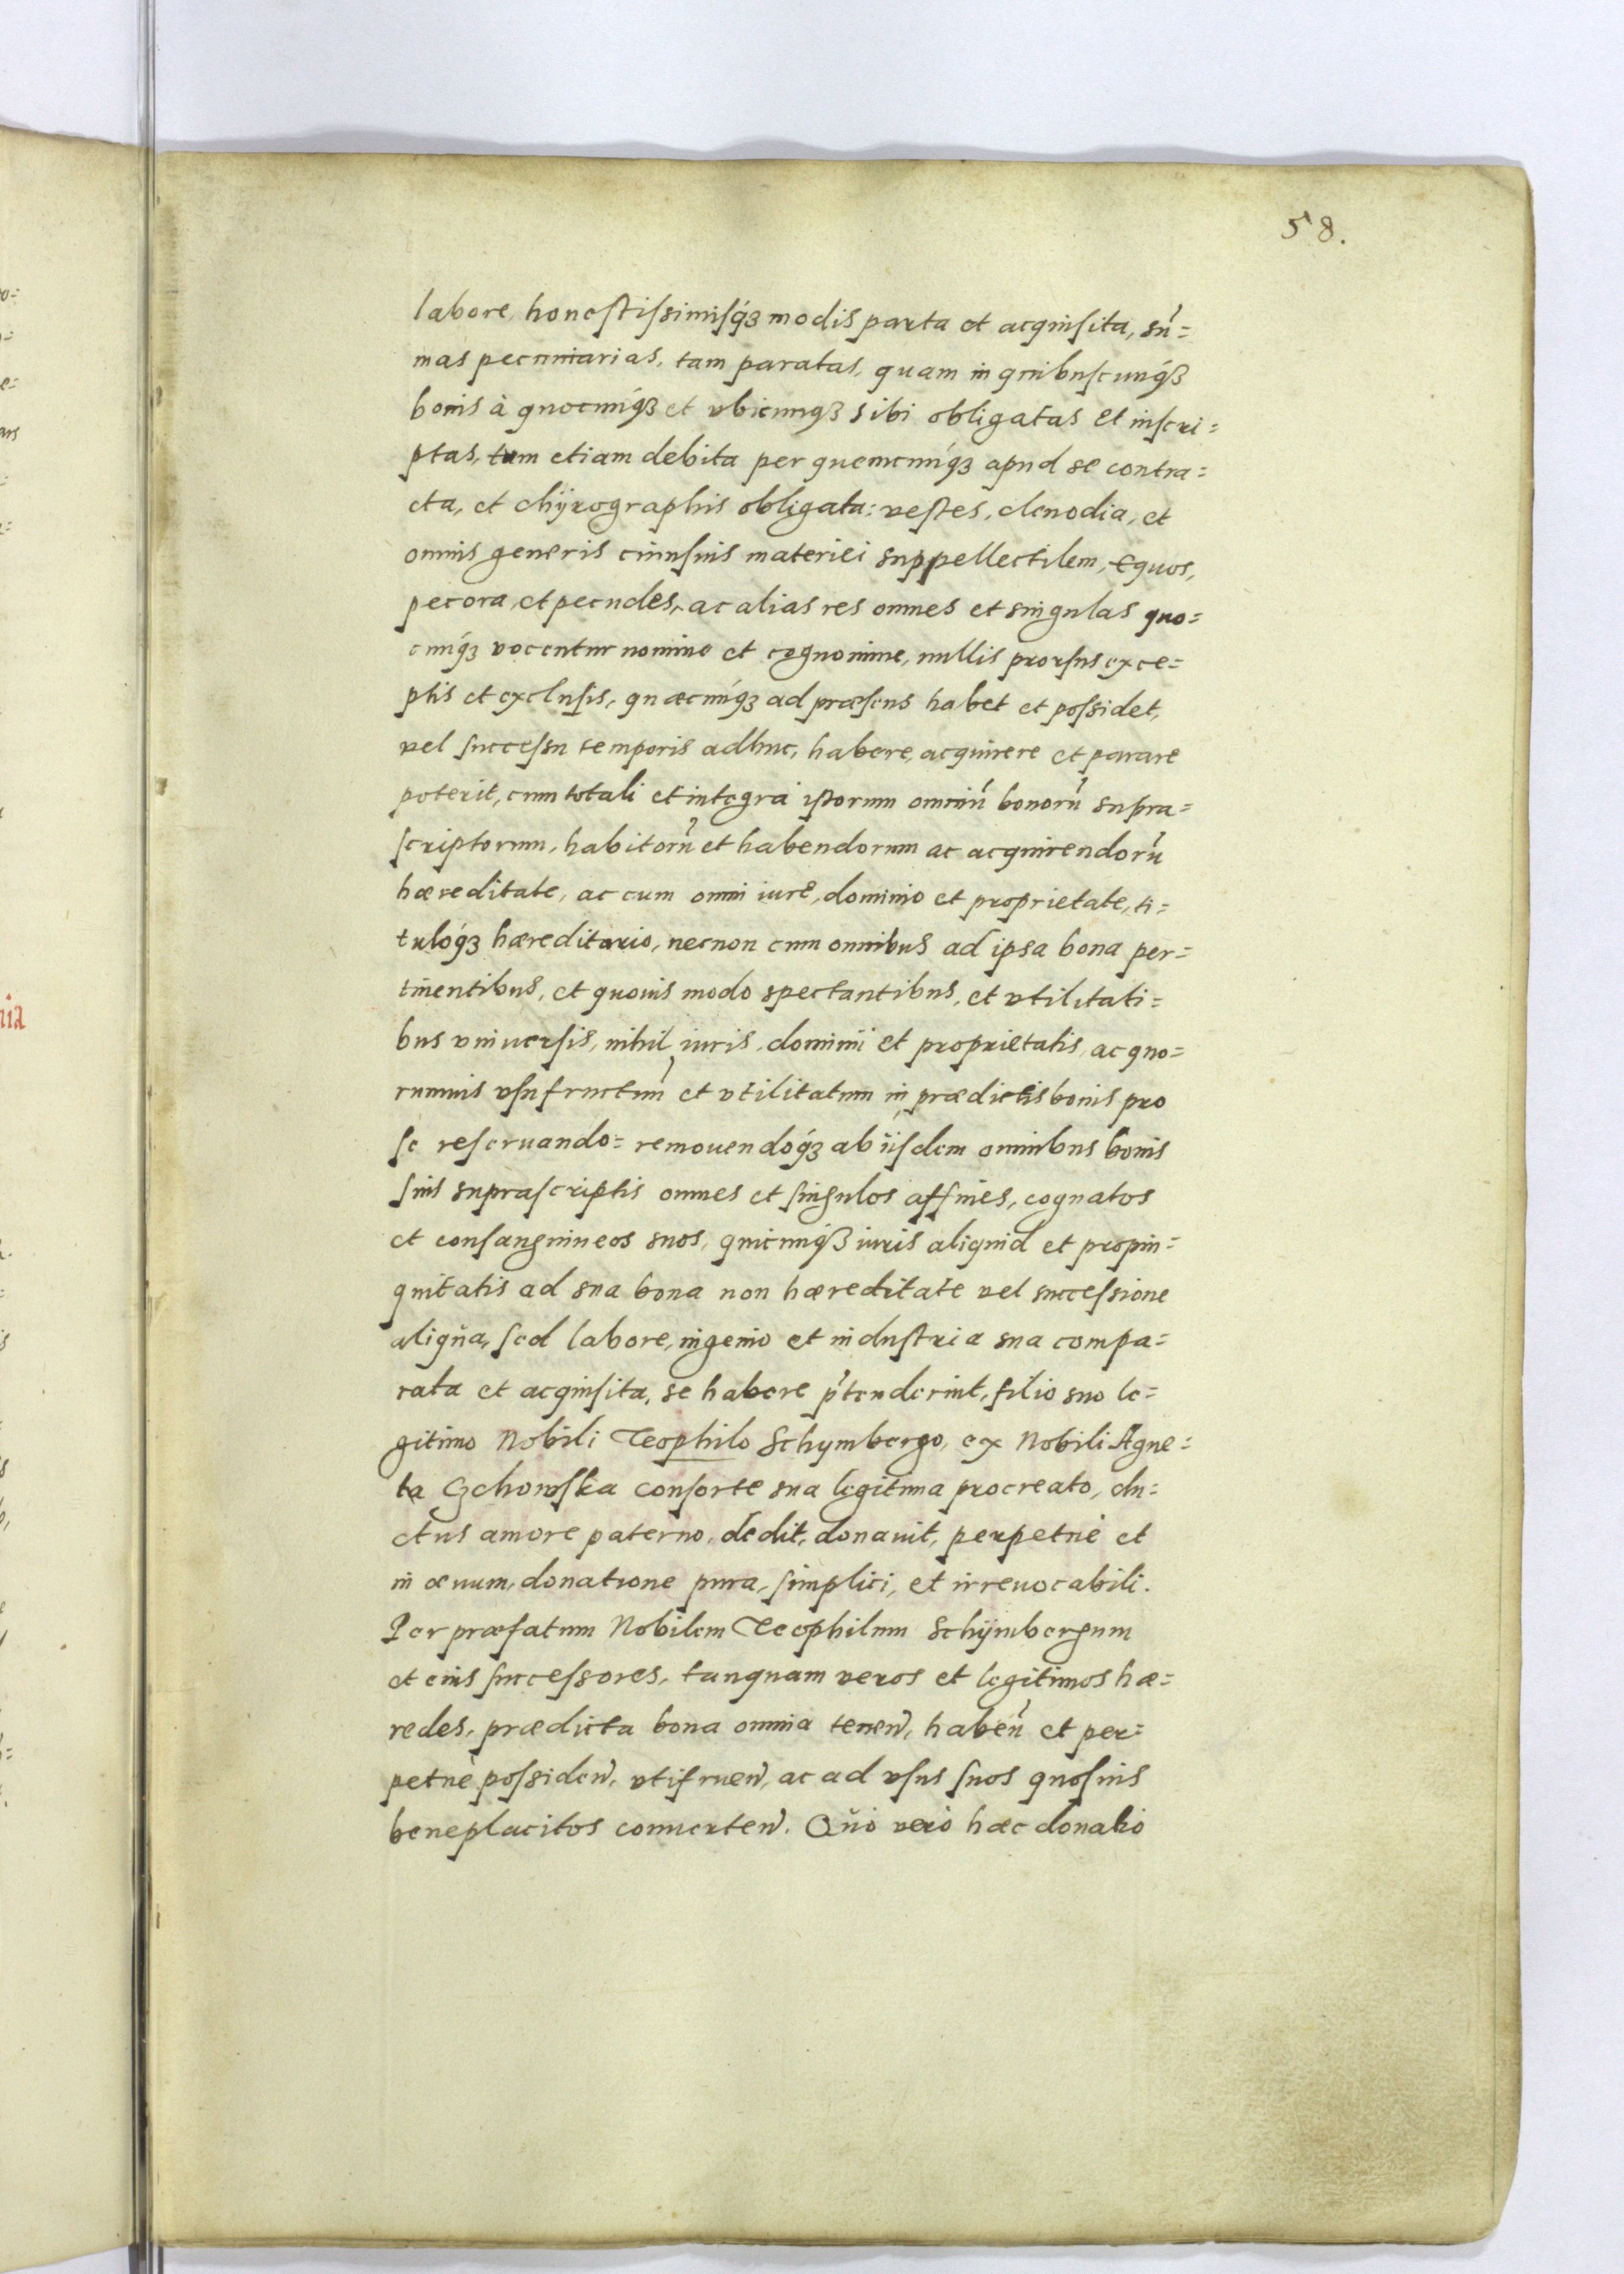 58.
labore, honestissimisq́ꝫ modis parta et acquisita, sum̃=
mas pecuniarias, tam paratas, quam in quibuscunq́ꝫ
bonis à quocunq́ꝫ et vbicunqꝫ sibi obligatas et inscri=
ptas, tum etiam debita per quemcunq́ꝫ apud se contra=
cta, et chÿrographis obligata: vestes, clenodia, et
omnis generis cuiusuis materiei suppellectilem, Equos,
pecora, et pecudes, ac alias res omnes et singulas quo=
cunq́ꝫ vocentur nomine et cognomine, nullis prorsus exce=
ptis et exclusis, quæcunq́ꝫ ad præsens habet et possidet,
vel successu temporis adhuc, habere, acquirere et parare
poterit, cum totali et integra istorum omniũ bonorũ supra=
scriptorum, habitorũ et habendorum ac acquirendorũ
hæreditate, ac cum omni iure, dominio et proprietate, ti=
tulóq́ꝫ hæreditario, necnon cum omnibus ad ipsa bona per=
tinentibus, et quouis modo spectantibus, et vtilitati=
bus vniuersis, nihil iuris, dominii et proprietatis, ac quo=
rumuis vsufructuũ et vtilitatum in prædictis bonis pro
se reseruando= remouendoq́ꝫ ab iisdem omnibus bonis
suis suprascriptis omnes et singulos affines, cognatos
et consanguineos suos, quicunq́ꝫ iuris aliquid et propin=
quitatis ad sua bona non hæreditate vel successione
aliqũa, sed labore, ingenio et industria sua compa=
rata et acquisita, se habere p̃tenderint, filio suo le=
gitimo Nobili Teophilo Schymbergo, ex Nobili Agne=
ta Czchowska consorte sua legitima procreato, du=
ctus amore paterno, dedit, donauit, perpetuè et
in æuum, donatione pura, simplici, et irreuocabili.
Per præfatum Nobilem Teophilum Schÿmbergum
et eius successores, tanquam veros et legitimos hæ=
redes, prædicta bona omnia teneñ, habeñ et per=
petuè possideñ, vtifrueñ, ac ad vsus suos quosuis
beneplacitos conuerteñ. Qũo verò hæc donatio